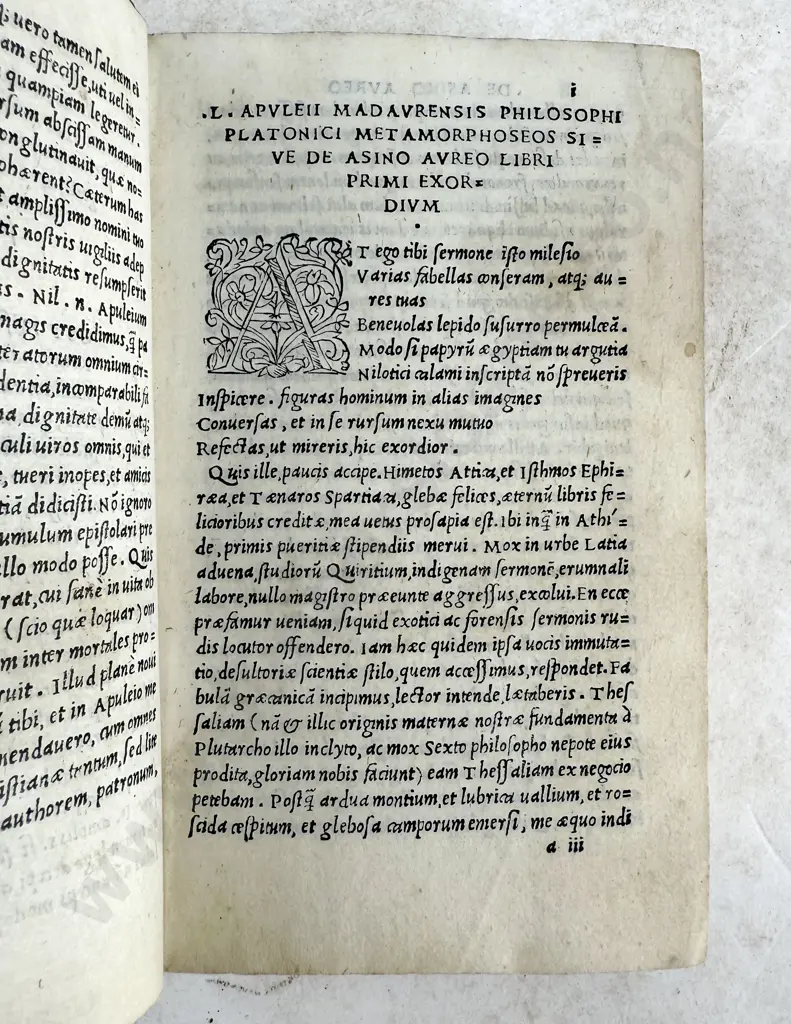 q; uero tamen ſalutem ei
am effeciſſe, uti uel in=
quampiam legeretur.
rſum abſciſſam manum
onglutinauit, quæ no=
ohærent? Cæterum has
t ampliſſimo nomini tuo
tis noſtris uigiliis adep
dignitatis reſumpſerit
s. Nil. n. Apuleium
magis credidimus, q̃ pa
ter atorum omnium cir=
dentia, incomparabili fa
na, dignitate demũ atq;
culi uiros omnis, qui et
, tueri inopes, et amicis
tiã didiciſti. Nõ ignoro
umulum epiſtolari pre
llo modo poſſe. Quis
rat, cui ſanè in uita ob
(ſcio quæ loquar) om
m inter mortales pro=
ruit. Illud planè noui
tibi, et in Apuleio me
mendauero, cum omnes
iſtianæ tantum, ſed lite
authorem, patronum,
i
.L. APVLEII MADAVRENSIS PHILOSOPHI
PLATONICI METAMORPHOSEOS SI=
VE DE ASINO AVREO LIBRI
PRIMI EXOR=
DIVM
.
AT ego tibi ſermone iſto mileſio
Varias fabellas conſeram, atq; au=
res tuas
Beneuolas lepido ſuſurro permulceã.
Modo ſi papyrũ ægyptiam tu argutia
Nilotici calami inſcriptã nõ ſpreueris
Inſpicere. figuras hominum in alias imagines
Conuerſas, et in ſe rurſum nexu mutuo
Refectas, ut mireris, hic exordior.
Quis ille, paucis accipe. Himetos Attica, et Iſthmos Ephi=
ræa, et Tænaros Spartiaca, glebæ felices, æternũ libris fe=
licioribus creditæ, mea uetus proſapia eſt. Ibi inq̃ in Athi=
de, primis pueritiæ ſtipendiis merui. Mox in urbe Latia
aduena, ſtudiorũ Quiritium, indigenam ſermonẽ, erumnali
labore, nullo magiſtro præeunte aggreſſus, excolui. En ecce
præfamur ueniam, ſiquid exotici ac forenſis ſermonis ru=
dis locutor offendero. Iam hæc quidem ipſa uocis immuta=
tio, deſultoriæ ſcientiæ ſtilo, quem acceſſimus, reſpondet. Fa
bulã græcanicã incipimus, lector intende, lætaberis. Theſ
ſaliam (nã & illic originis maternæ noſtræ fundamenta à
Plutarcho illo inclyto, ac mox Sexto philoſopho nepote eius
prodita, gloriam nobis faciunt) eam Theſſaliam ex negocio
petebam. Poſtq̃ ardua montium, et lubrica uallium, et ro=
ſcida ceſpitum, et gleboſa camporum emerſi, me æquo indi
a iii